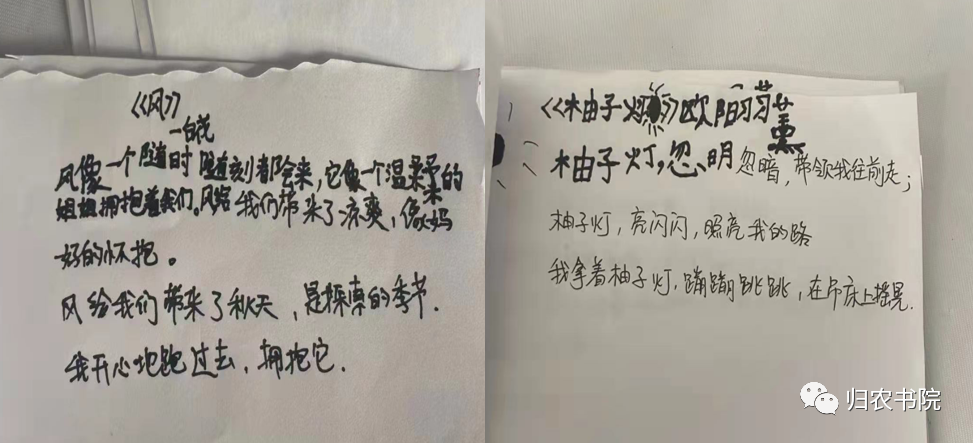 《风》
一白
风像一个随时随刻都会来，它像一个温柔的
姐姐拥抱着我们。风给我们带来了凉爽，像妈
好的怀抱。
风给我们带来了秋天，是探索的季节.
我开心地跑过去，拥抱它.
《柚子灯》欧阳习习薰
柚子灯，忽明忽暗，带领我往前走；
柚子灯，亮闪闪，照亮我的路
我拿着柚子灯，蹦蹦跳跳，在吊床上摇晃.
归农书院